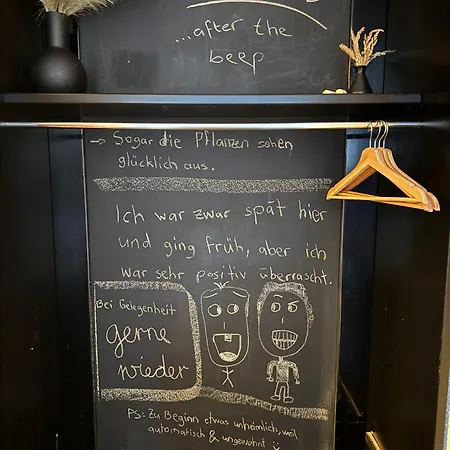 ...after the
beep
→ Sogar die Pflanzen sahen
glücklich aus.
Ich war zwar spät hier
und ging früh, aber ich
war sehr positiv überrascht.
Bei Gelegenheit
gerne
wieder
PS: Zu Beginn etwas unheimlich, weil
automatisch & ungewohnt :)